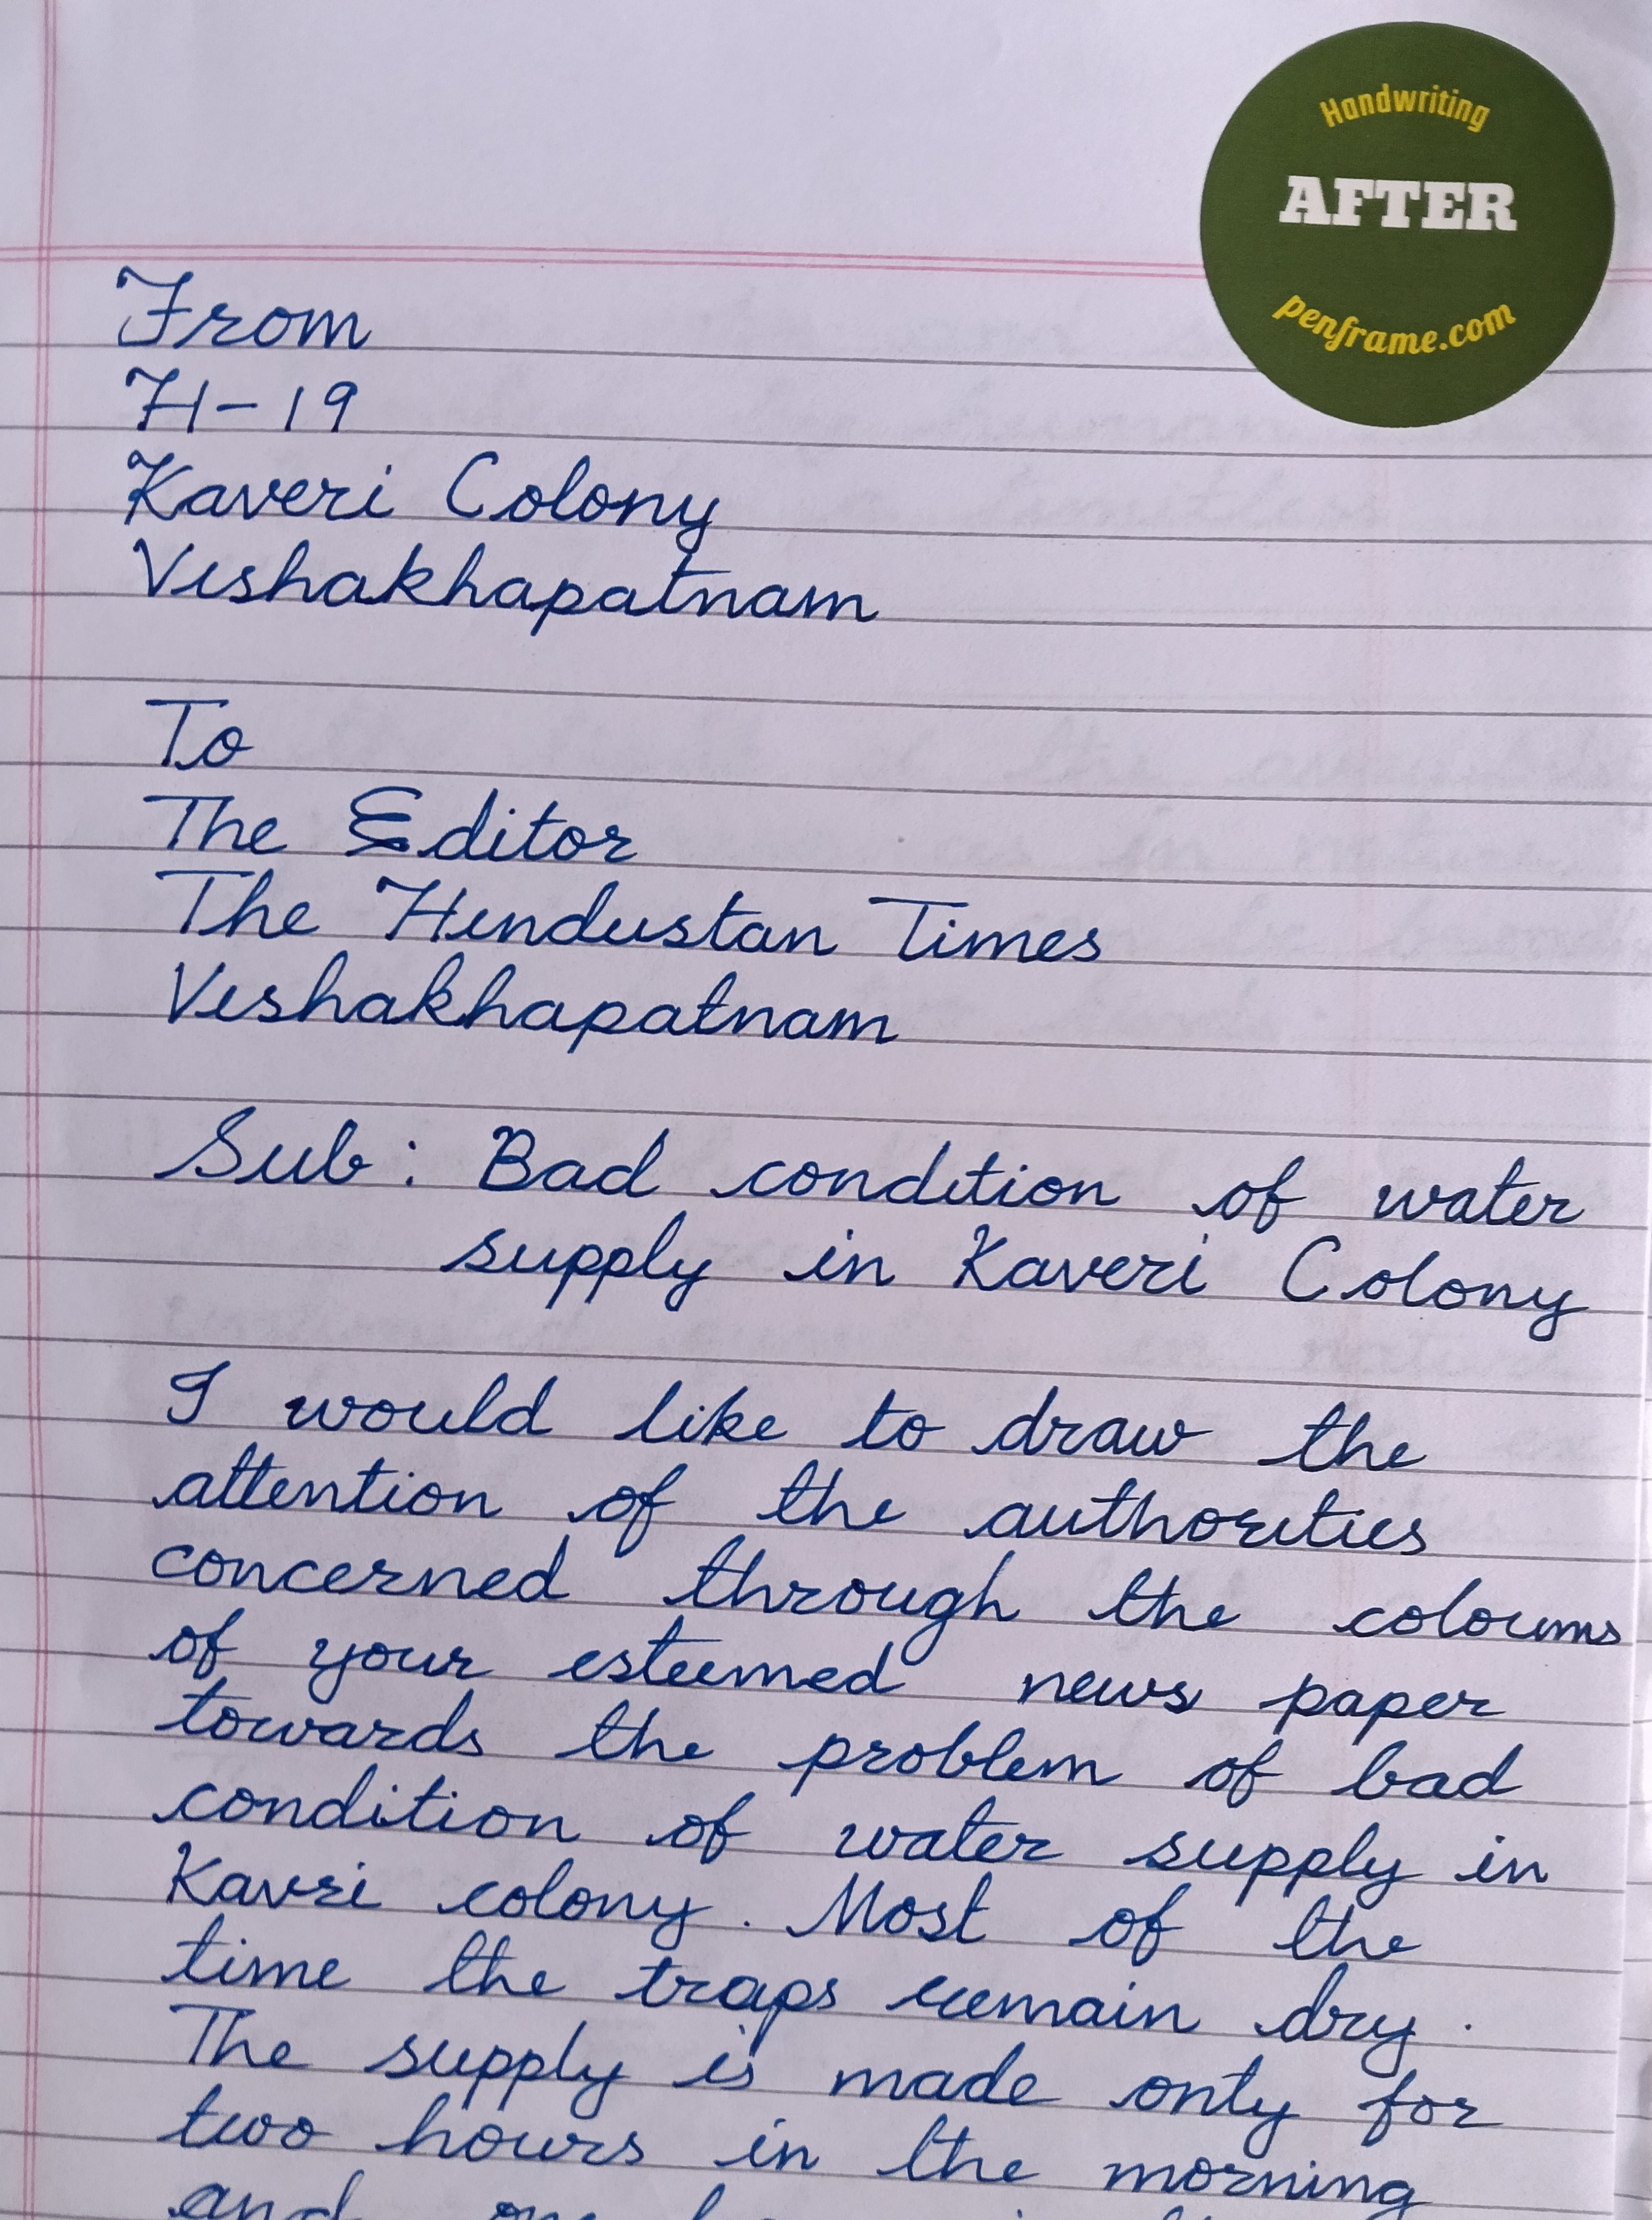 Handwriting
AFTER
penframe.com
From
H-19
Kaveri Colony
Vishakhapatnam
To
The Editor
The Hindustan Times
Vishakhapatnam
Sub: Bad condition of water
supply in Kaveri Colony
I would like to draw the
attention of the authorities
concerned through the coloums
of your esteemed news paper
towards the problem of bad
condition of water supply in
Kavri colony. Most of the
time the traps remain dry.
The supply is made only for
two hours in the morning
and one